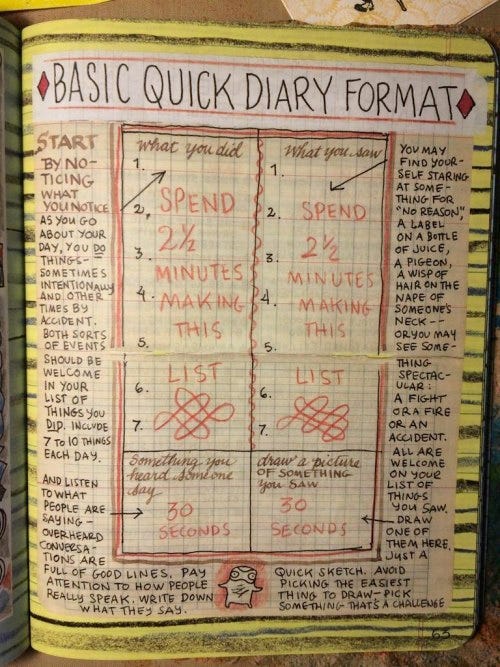 BASIC QUICK DIARY FORMAT
START
BY NO-
TICING
WHAT
YOU NOTICE
AS YOU GO
ABOUT YOUR
DAY, YOU DO
THINGS-
SOMETIMES
INTENTIONALLY
AND OTHER
TIMES BY
ACCIDENT.
BOTH SORTS
OF EVENTS
SHOULD BE
WELCOME
IN YOUR
LIST OF
THINGS YOU
DID. INCLUDE
7 TO 10 THINGS
EACH DAY.
AND LISTEN
TO WHAT
PEOPLE ARE
SAYING -
OVERHEARD
CONVERSA-
TIONS ARE
FULL OF GOOD LINES. PAY
ATTENTION TO HOW PEOPLE
REALLY SPEAK. WRITE DOWN
WHAT THEY SAY.
What you did
1.
2. SPEND
2½
3.
MINUTES
4. MAKING
THIS
5.
LIST
6.
7.
What you saw
1.
2. SPEND
2½
3.
MINUTES
4. MAKING
THIS
5.
LIST
6.
7.
Something you
heard someone
say
30
SECONDS
draw a picture
OF SOMETHING
YOU SAW
30
SECONDS
YOU MAY
FIND YOUR-
SELF STARING
AT SOME-
THING FOR
"NO REASON",
A LABEL
ON A BOTTLE
OF JUICE,
A PIGEON,
A WISP OF
HAIR ON THE
NAPE OF
SOMEONE'S
NECK--
OR YOU MAY
SEE SOME-
THING
SPECTAC-
ULAR:
A FIGHT
OR A FIRE
OR AN
ACCIDENT.
ALL ARE
WELCOME
ON YOUR
LIST OF
THINGS
YOU SAW.
DRAW
ONE OF
THEM HERE.
JUST A
QUICK SKETCH. AVOID
PICKING THE EASIEST
THING TO DRAW-PICK
SOMETHING THAT'S A CHALLENGE
63